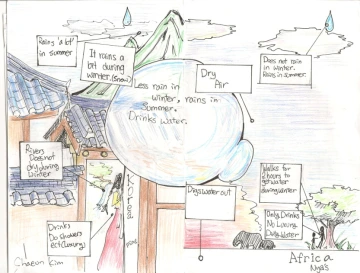 Rains "a lot"
in summer
It rains a
bit during
winter. (snow)
Less rain in
winter, rains in
Summer.
Drinks water.
Dry
Air
Does not rain
in winter.
Rains in Summer.
Rivers
Does not
dry during
Winter
Drinks
Do Showers
ect (Luxury)
Chaeun Kim
Korea
Digs water out
Walks for
2 hours to
get water
during winter
Only Drinks
No Luxury
Dirty Water
Africa
Nya's